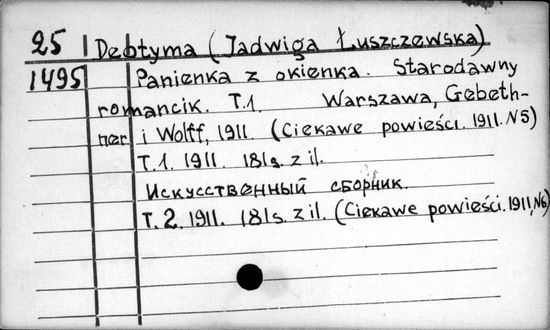 25 Deotyma (Jadwiga Łuszczewska)
1495 Panienka z okienka. Starodawny
romancik. T.1 Warszawa, Gebeth-
ner i Wolff, 1911. (Ciekawe powieści. 1911. N5)
T.1. 1911. 181s. z il.
Искусственный сборник.
T.2. 1911. 181s. z il. (Ciekawe powieści. 1911, N6)